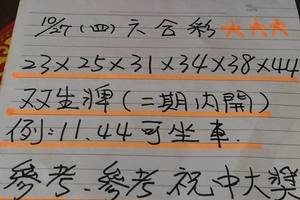 10/27(四)六合彩★★★
23×25×31×34×38×44
双生渾(二期內開)
例:11.44可坐車.
參考.參考祝中大獎